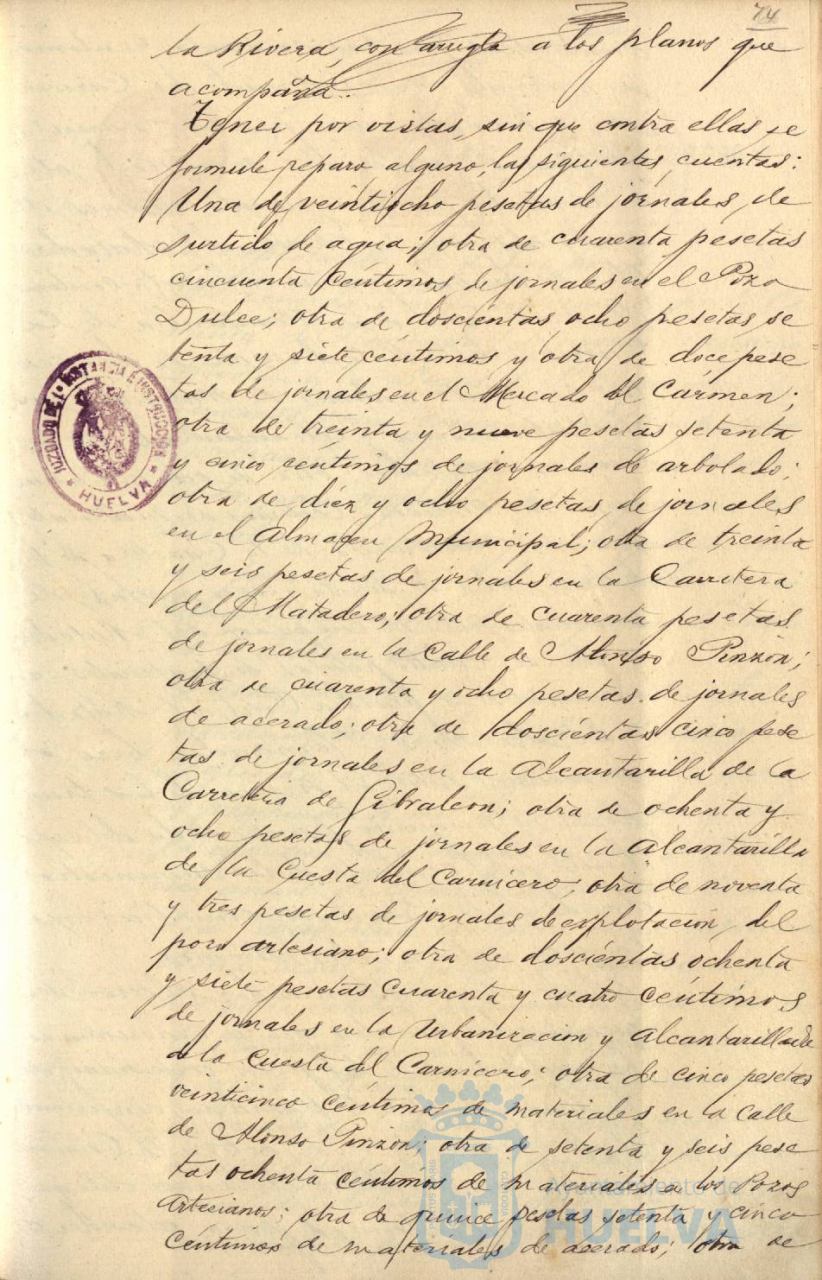 74
la Rivera, con arreglo a los planos que
acompaña.
Tener por vistas, sin que contra ellas se
formule reparo alguno, las siguientes cuentas:
Una de veintiocho pesetas de jornales de
surtido de agua; otra de cuarenta pesetas
cincuenta centimos de jornales en el Pozo
Dulce; otra de doscientas ocho pesetas se
tenta y siete céntimos y otra de doce pese
tas de jornales en el Mercado del Carmen;
otra de treinta y nueve pesetas setenta
y cinco centimos de jornales de arbolado;
otra de diez y ocho pesetas de jornales
en el Almacen Municipal; otra de treinta
y seis pesetas de jornales en la Carretera
del Matadero; otra de cuarenta pesetas
de jornales en la Calle de Alonso Pinzon;
otra de cuarenta y ocho pesetas de jornales
de acerado; otra de doscientas cinco pese
tas de jornales en la Alcantarilla de la
Carretera de Gibraleon; otra de ochenta y
ocho pesetas de jornales en la Alcantarilla
de la Cuesta del Carnicero; otra de noventa
y tres pesetas de jornales de explotacion del
pozo artesiano; otra de doscientas ochenta
y siete pesetas cuarenta y cuatro céntimos
de jornales en la Urbanizacion y Alcantarillado
de la Cuesta del Carnicero; otra de cinco pesetas
veinticinco céntimos de materiales en la Calle
de Alonso Pinzon; otra de setenta y seis pese
tas ochenta céntimos de materiales a los Pozos
Artesianos; otra de quince pesetas setenta y cinco
céntimos de materiales de acerado; otra de
JUZGADO DE 1ª INSTANCIA E INSTRUCCION
HUELVA
Ayuntamiento de
HUELVA